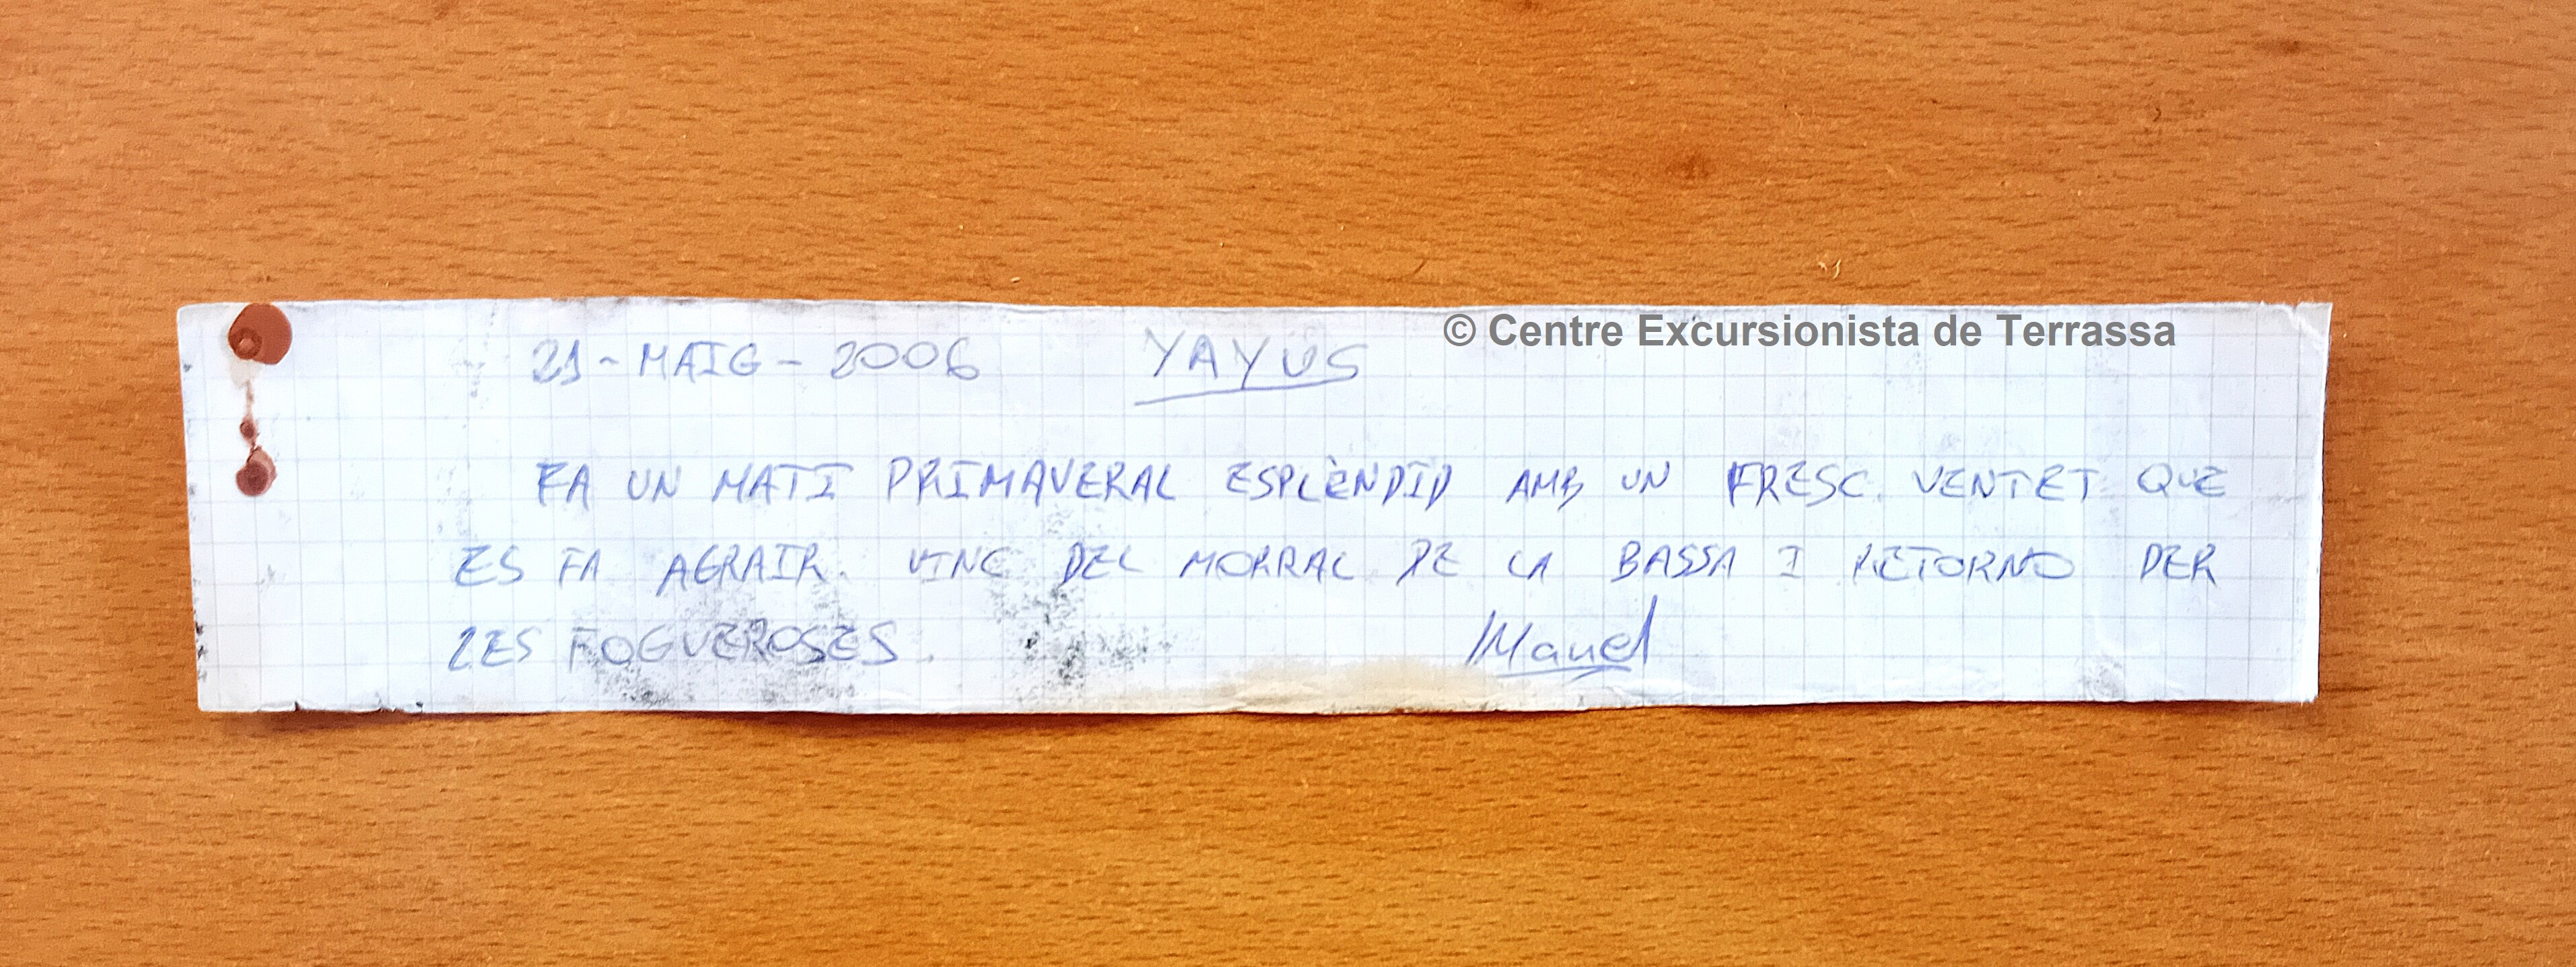 © Centre Excursionista de Terrassa
21 - MAIG - 2006 YAYUS
FA UN MATI PRIMAVERAL ESPLÈNDID AMB UN FRESC VENTET QUE
ES FA AGRAIR. VINC DEL MORRAL DE LA BASSA I RETORNO PER
LES FOGUEROSES.
Manel